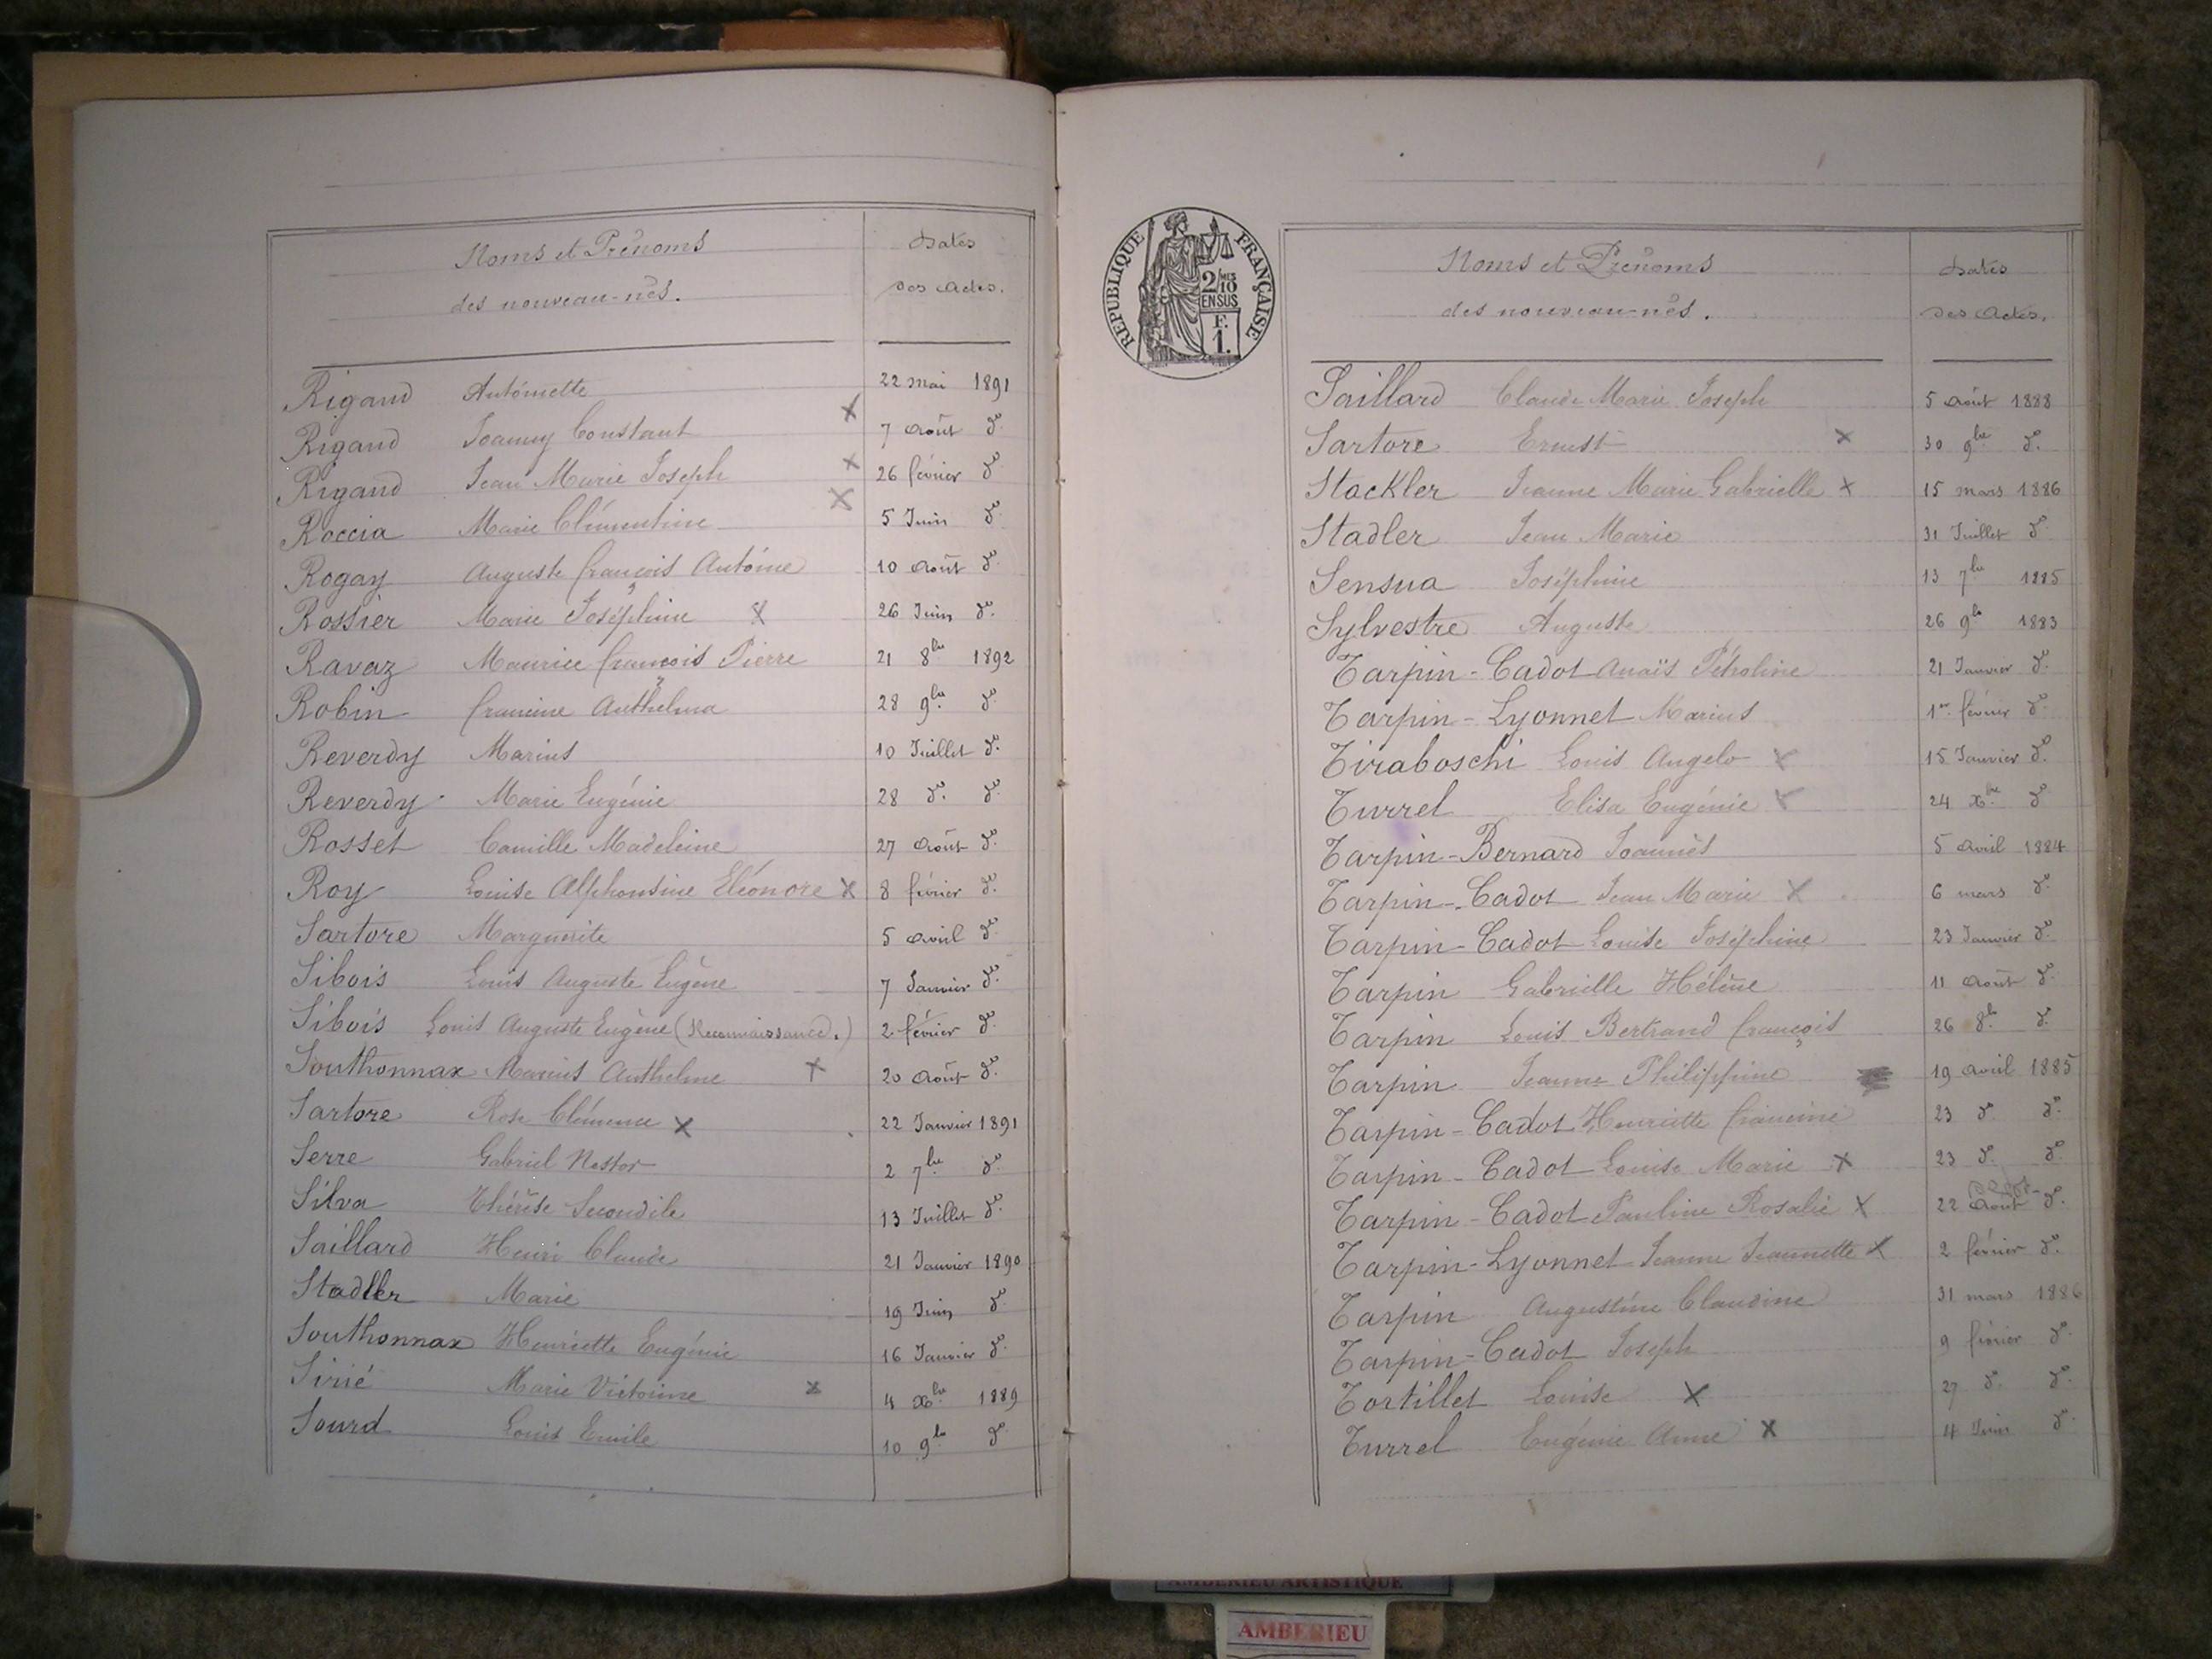 Noms et Prénoms
des nouveau-nés.
Dates
des actes.
Rigaud Antoinette 22 mai 1891
Rigaud Joanny Constant x 7 août do
Rigaud Jean Marie Joseph x 26 février do
Roccia Marie Clémentine x 5 Juin do
Rogay Auguste françois Antoine 10 août do
Rossier Marie Joséphine x 26 Juin do
Ravaz Maurice françois Pierre 21 8bre 1892
Robin francine Anthelma 28 9bre do
Reverdy Marius 10 Juillet do
Reverdy Marie Eugénie 28 do do
Rosset Camille Madeleine 27 août do
Roy Louise Alphonsine Eléonore x 8 février do
Sartore Marguerite 5 avril do
Sibois Louis Auguste Eugène 7 Janvier do
Sibois Louis Auguste Eugène (Reconnaissance.) 2 février do
Southonnax Marius Anthelme x 20 août do
Sartore Rose Clémence x 22 Janvier 1891
Serre Gabriel Nestor 2 7bre do
Silva Thérèse Secondile 13 Juillet do
Saillard Henri Claude 21 Janvier 1890
Stadler Marie 19 Juin do
Southonnax Henriette Eugénie 16 Janvier do
Sirié Marie Victorine x 4 Xbre 1889
Sourd Louis Emile 10 9bre do
REPUBLIQUE FRANÇAISE
2/10 MES
EN SUS
F.
1.
Noms et Prénoms
des nouveau-nés.
Dates
des actes.
Saillard Claude Marie Joseph 5 août 1888
Sartore Ernest x 30 9bre do
Stackler Jeanne Marie Gabrielle x 15 mars 1886
Stadler Jean Marie 31 Juillet do
Sensua Joséphine 13 7bre 1885
Sylvestre Auguste 26 9bre 1883
Tarpin-Cadot Anaïs Pétroline 21 Janvier do
Tarpin-Lyonnet Marius 1er février do
Tiraboschi Louis Angelo x 15 Janvier do
Turrel Elisa Eugénie x 24 Xbre do
Tarpin-Bernard Joannès 5 avril 1884
Tarpin-Cadot Jean Marie x 6 mars do
Tarpin-Cadot Louise Joséphine 23 Janvier do
Tarpin Gabrielle Hélène 11 août do
Tarpin Louis Bertrand françois 26 8bre do
Tarpin Jeanne Philippine 19 avril 1885
Tarpin-Cadot Henriette francine 23 do do
Tarpin-Cadot Louise Marie x 23 do do
Tarpin-Cadot Pauline Rosalie x 22 août do
Tarpin-Lyonnet Jeanne Jeannette x 2 février do
Tarpin Augustine Claudine 31 mars 1886
Tarpin-Cadot Joseph 9 février do
Tortillet Louise x 27 do do
Turrel Eugénie Anne x 4 Juin do
AMBERIEU ARTISTIQUE
AMBERIEU